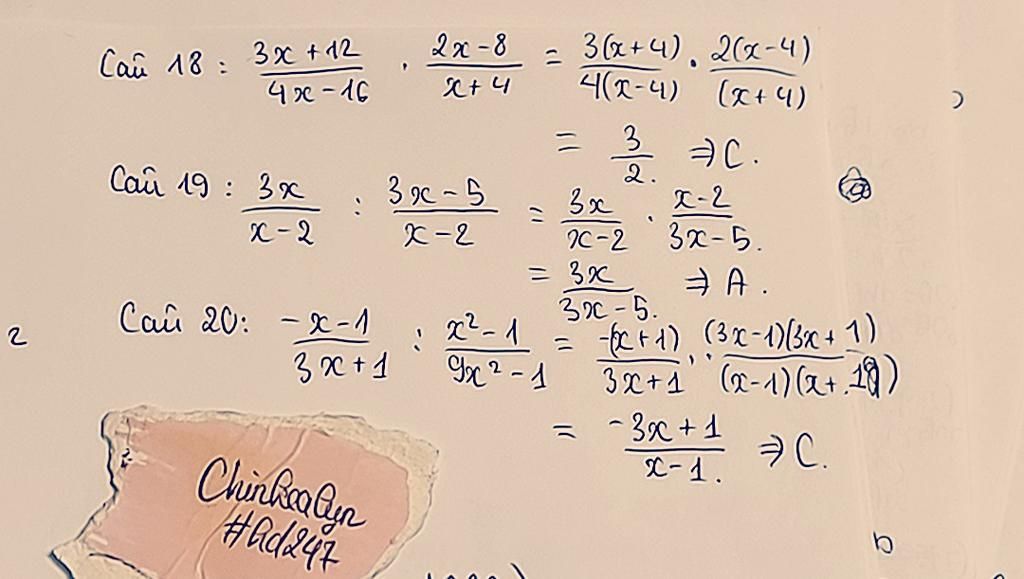 Câu 18 : (3x+12)/(4x-16) . (2x-8)/(x+4) = 3(x+4)/4(x-4) . 2(x-4)/(x+4)
= 3/2. ⇒ C.
Câu 19 : 3x/(x-2) : (3x-5)/(x-2) = 3x/(x-2) . (x-2)/(3x-5).
= 3x/(3x-5). ⇒ A.
Câu 20: (-x-1)/(3x+1) : (x²-1)/(9x²-1) = -(x+1)/(3x+1) . (3x-1)(3x+1)/(x-1)(x+1)
= (-3x+1)/(x-1). ⇒ C.
#Ad247